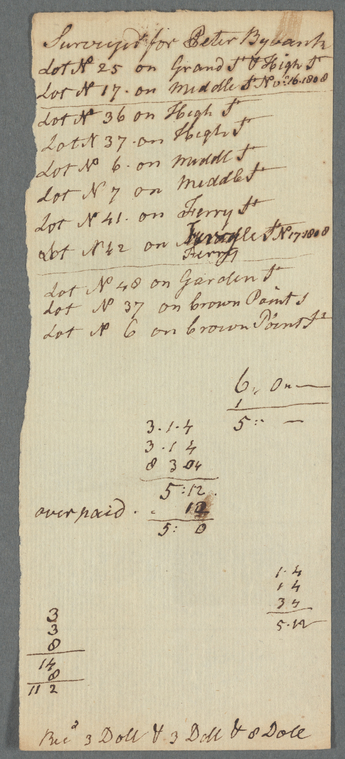 Survey'd for Peter Bybank
Lot N 25 on Grand St & High St
Lot N 17 on Middle St Nov 16 1808
Lot N 36 on High St
Lot N 37 on High St
Lot No 6 on Middl St
Lot N 7 on Middle St
Lot N 41 on Ferry St
Lot N 42 on St N 17 1808
Ferry
Lot N 48 on Garden St
Lot N 37 on Crown Point S
Lot N 6 on Crown Point St
6 " 0 " —
1
5 : : —
3 . 1 . 4
3 . 1 4
8 3 04
5 : 12
over paid . . 12
5 : 0
1 . 4
1 4
3 4
5 . 12
3
3
8
14
8
11 2
Recd 3 Doll & 3 Doll & 8 Doll